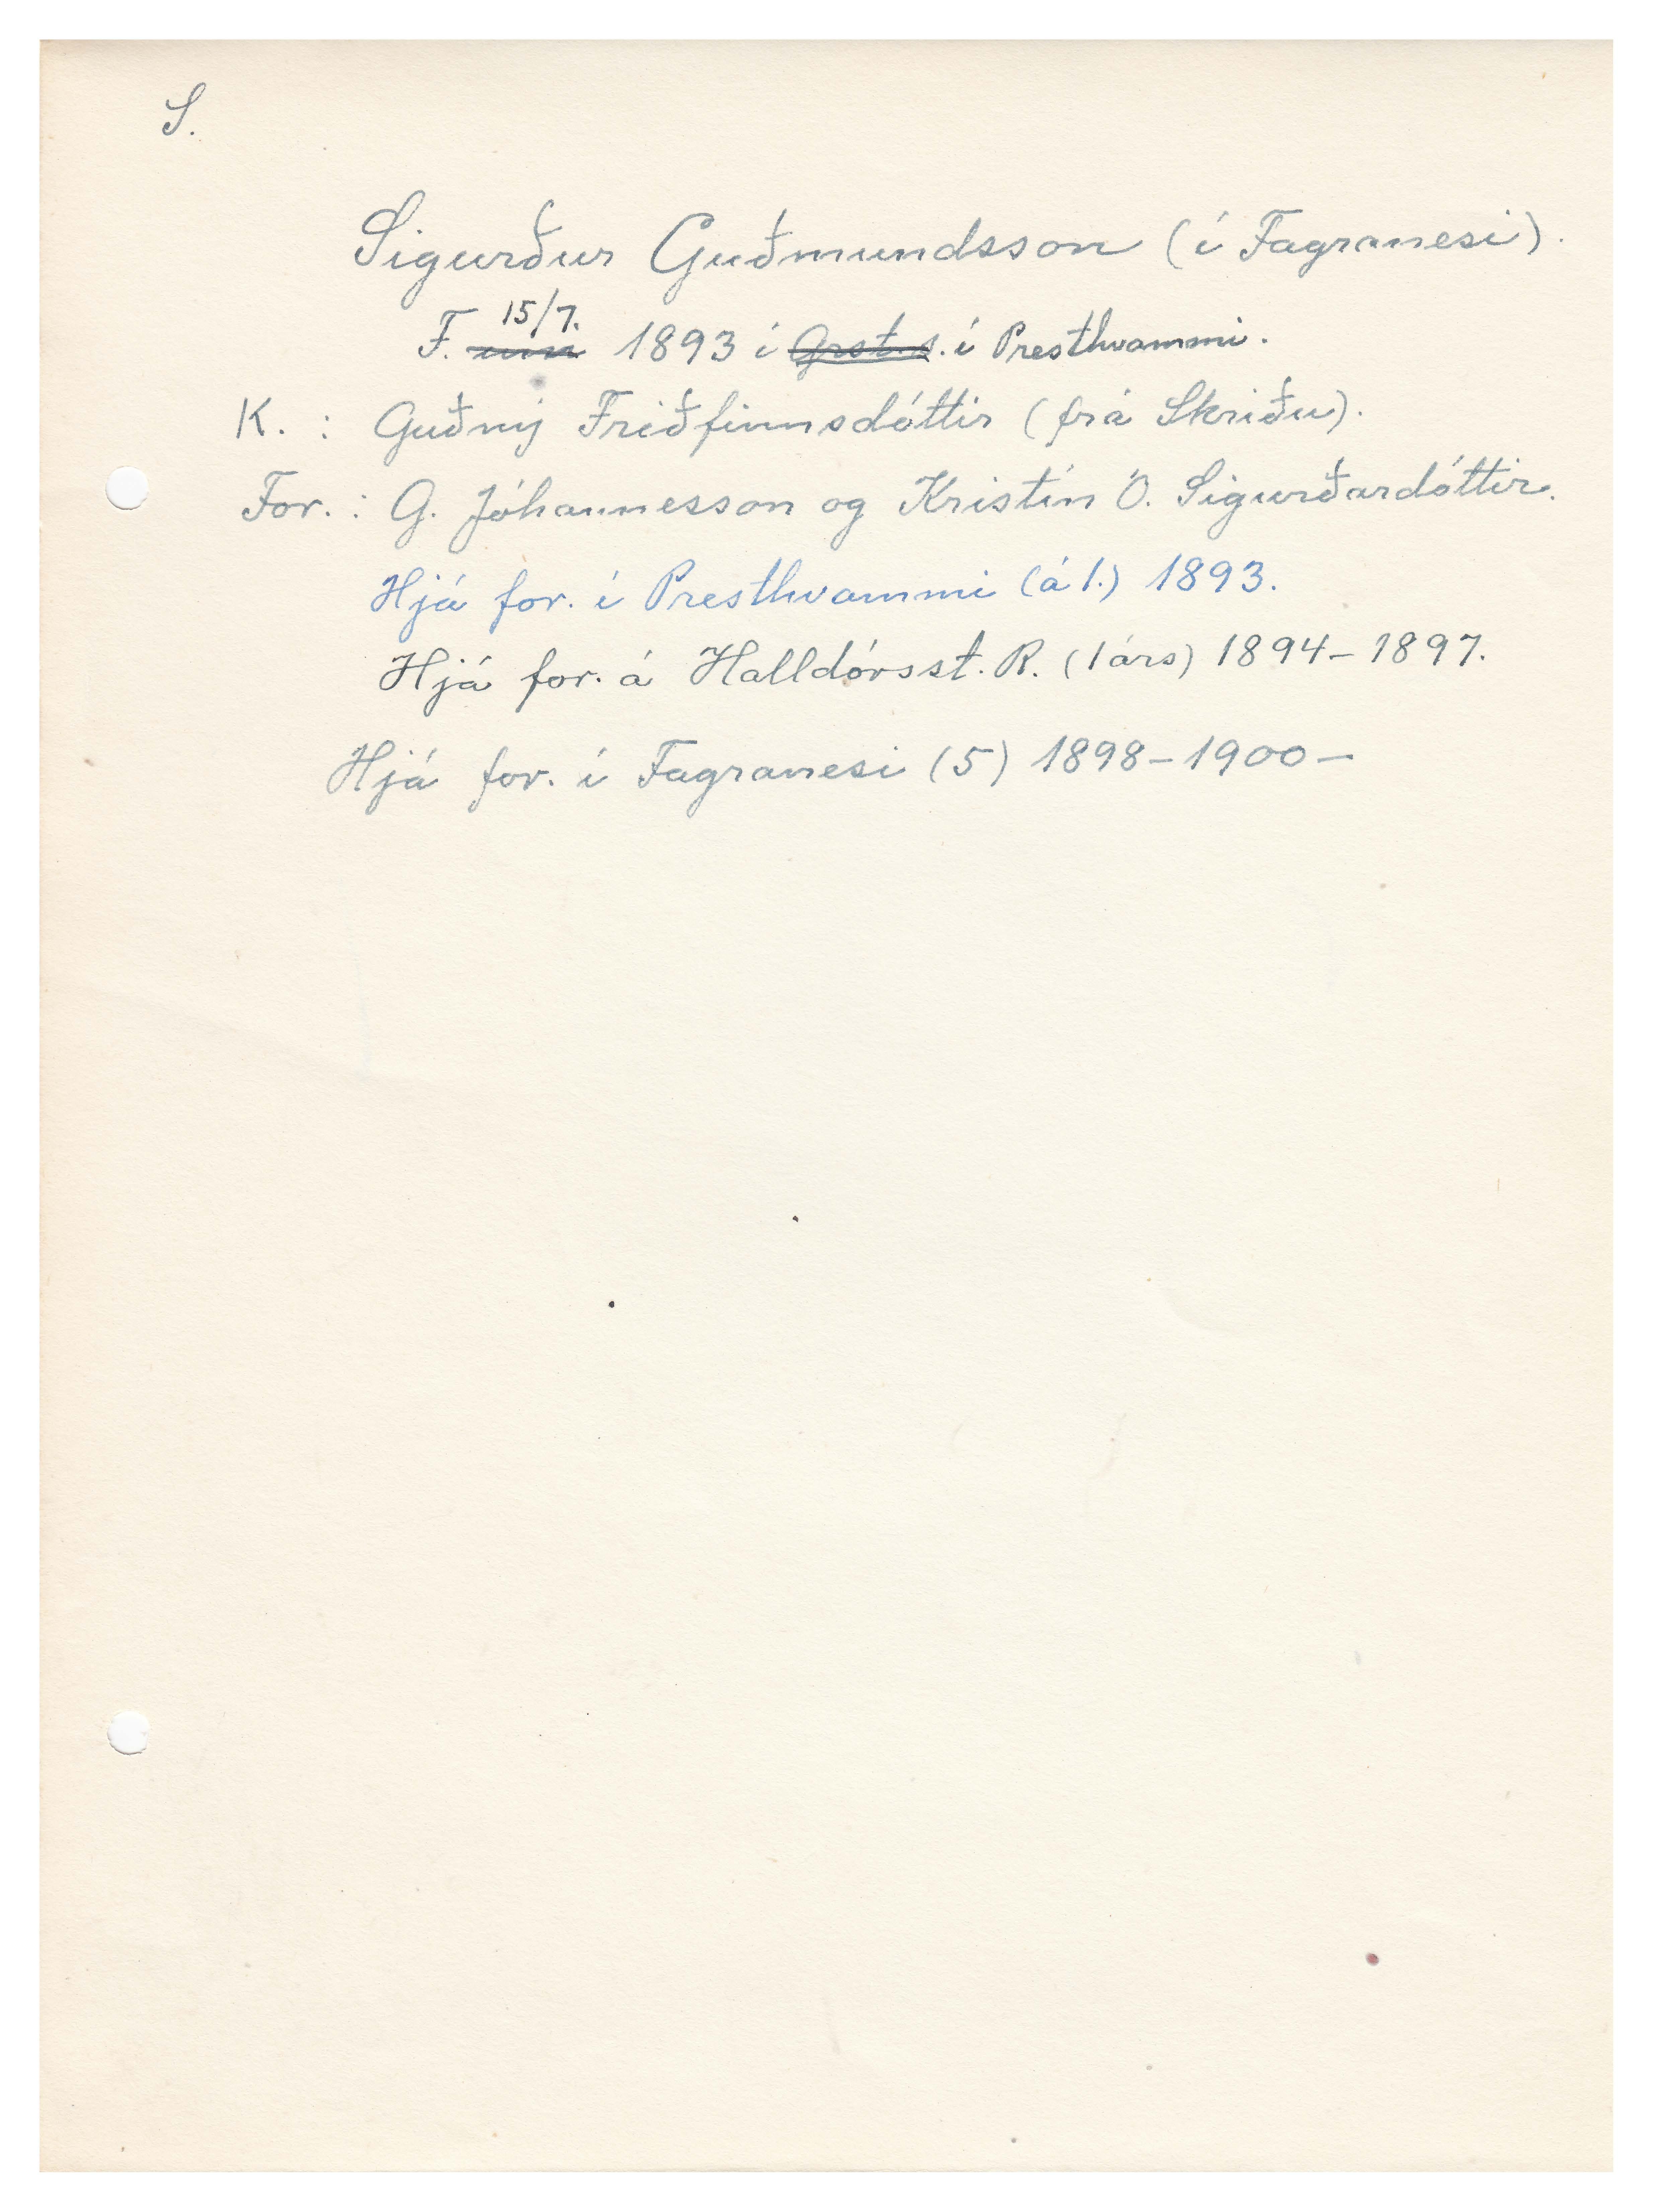 S.
Sigurður Guðmundsson (í Fagranesi).
15/7.
F. um 1893 í Grst.s. í Presthvammi.
K. : Guðný Friðfinnsdóttir (frá Skriðu).
For. : G. Jóhannesson og Kristín Ó. Sigurðardóttir.
Hjá for. í Presthvammi (á 1.) 1893.
Hjá for. á Halldórsst. R. (1 árs) 1894-1897.
Hjá for. í Fagranesi (5) 1898-1900-